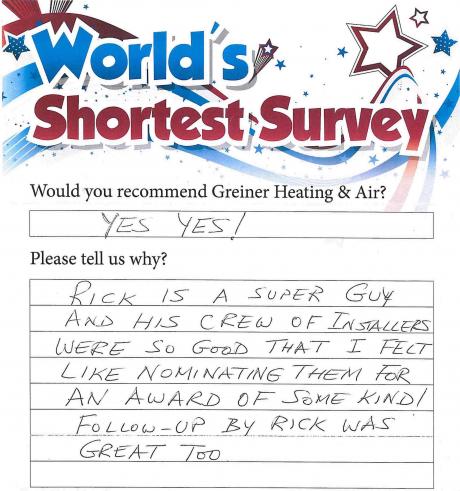 World's
Shortest Survey
Would you recommend Greiner Heating & Air?
YES YES!
Please tell us why?
RICK IS A SUPER GUY
AND HIS CREW OF INSTALLERS
WERE SO GOOD THAT I FELT
LIKE NOMINATING THEM FOR
AN AWARD OF SOME KIND!
FOLLOW-UP BY RICK WAS
GREAT TOO.